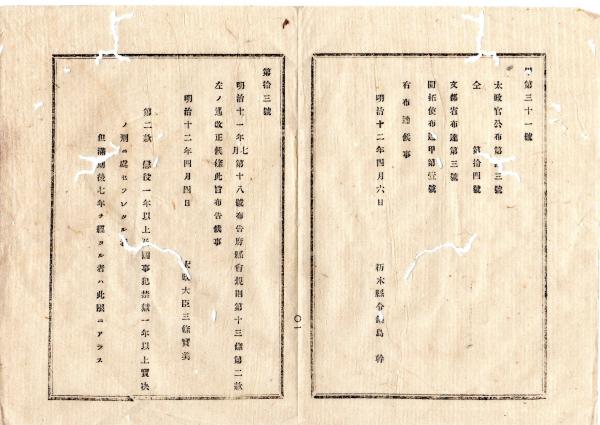 第三十一號
太政官公布第十三號
仝 第拾四號
文部省布達第三號
開拓使布達甲第壹號
右布達候事
明治十二年四月六日
栃木縣令鍋島 幹
〇一
第拾三號
明治十一年七月第十八號布告府縣會規則第十三條第二款
左ノ通改正候條此旨布告候事
明治十二年四月四日
太政大臣三條實美
第二款 懲役一年以上 國事犯禁獄一年以上實決
ノ刑ニ處セラレタル者
但滿期後七年ヲ經タル者ハ此限ニアラス